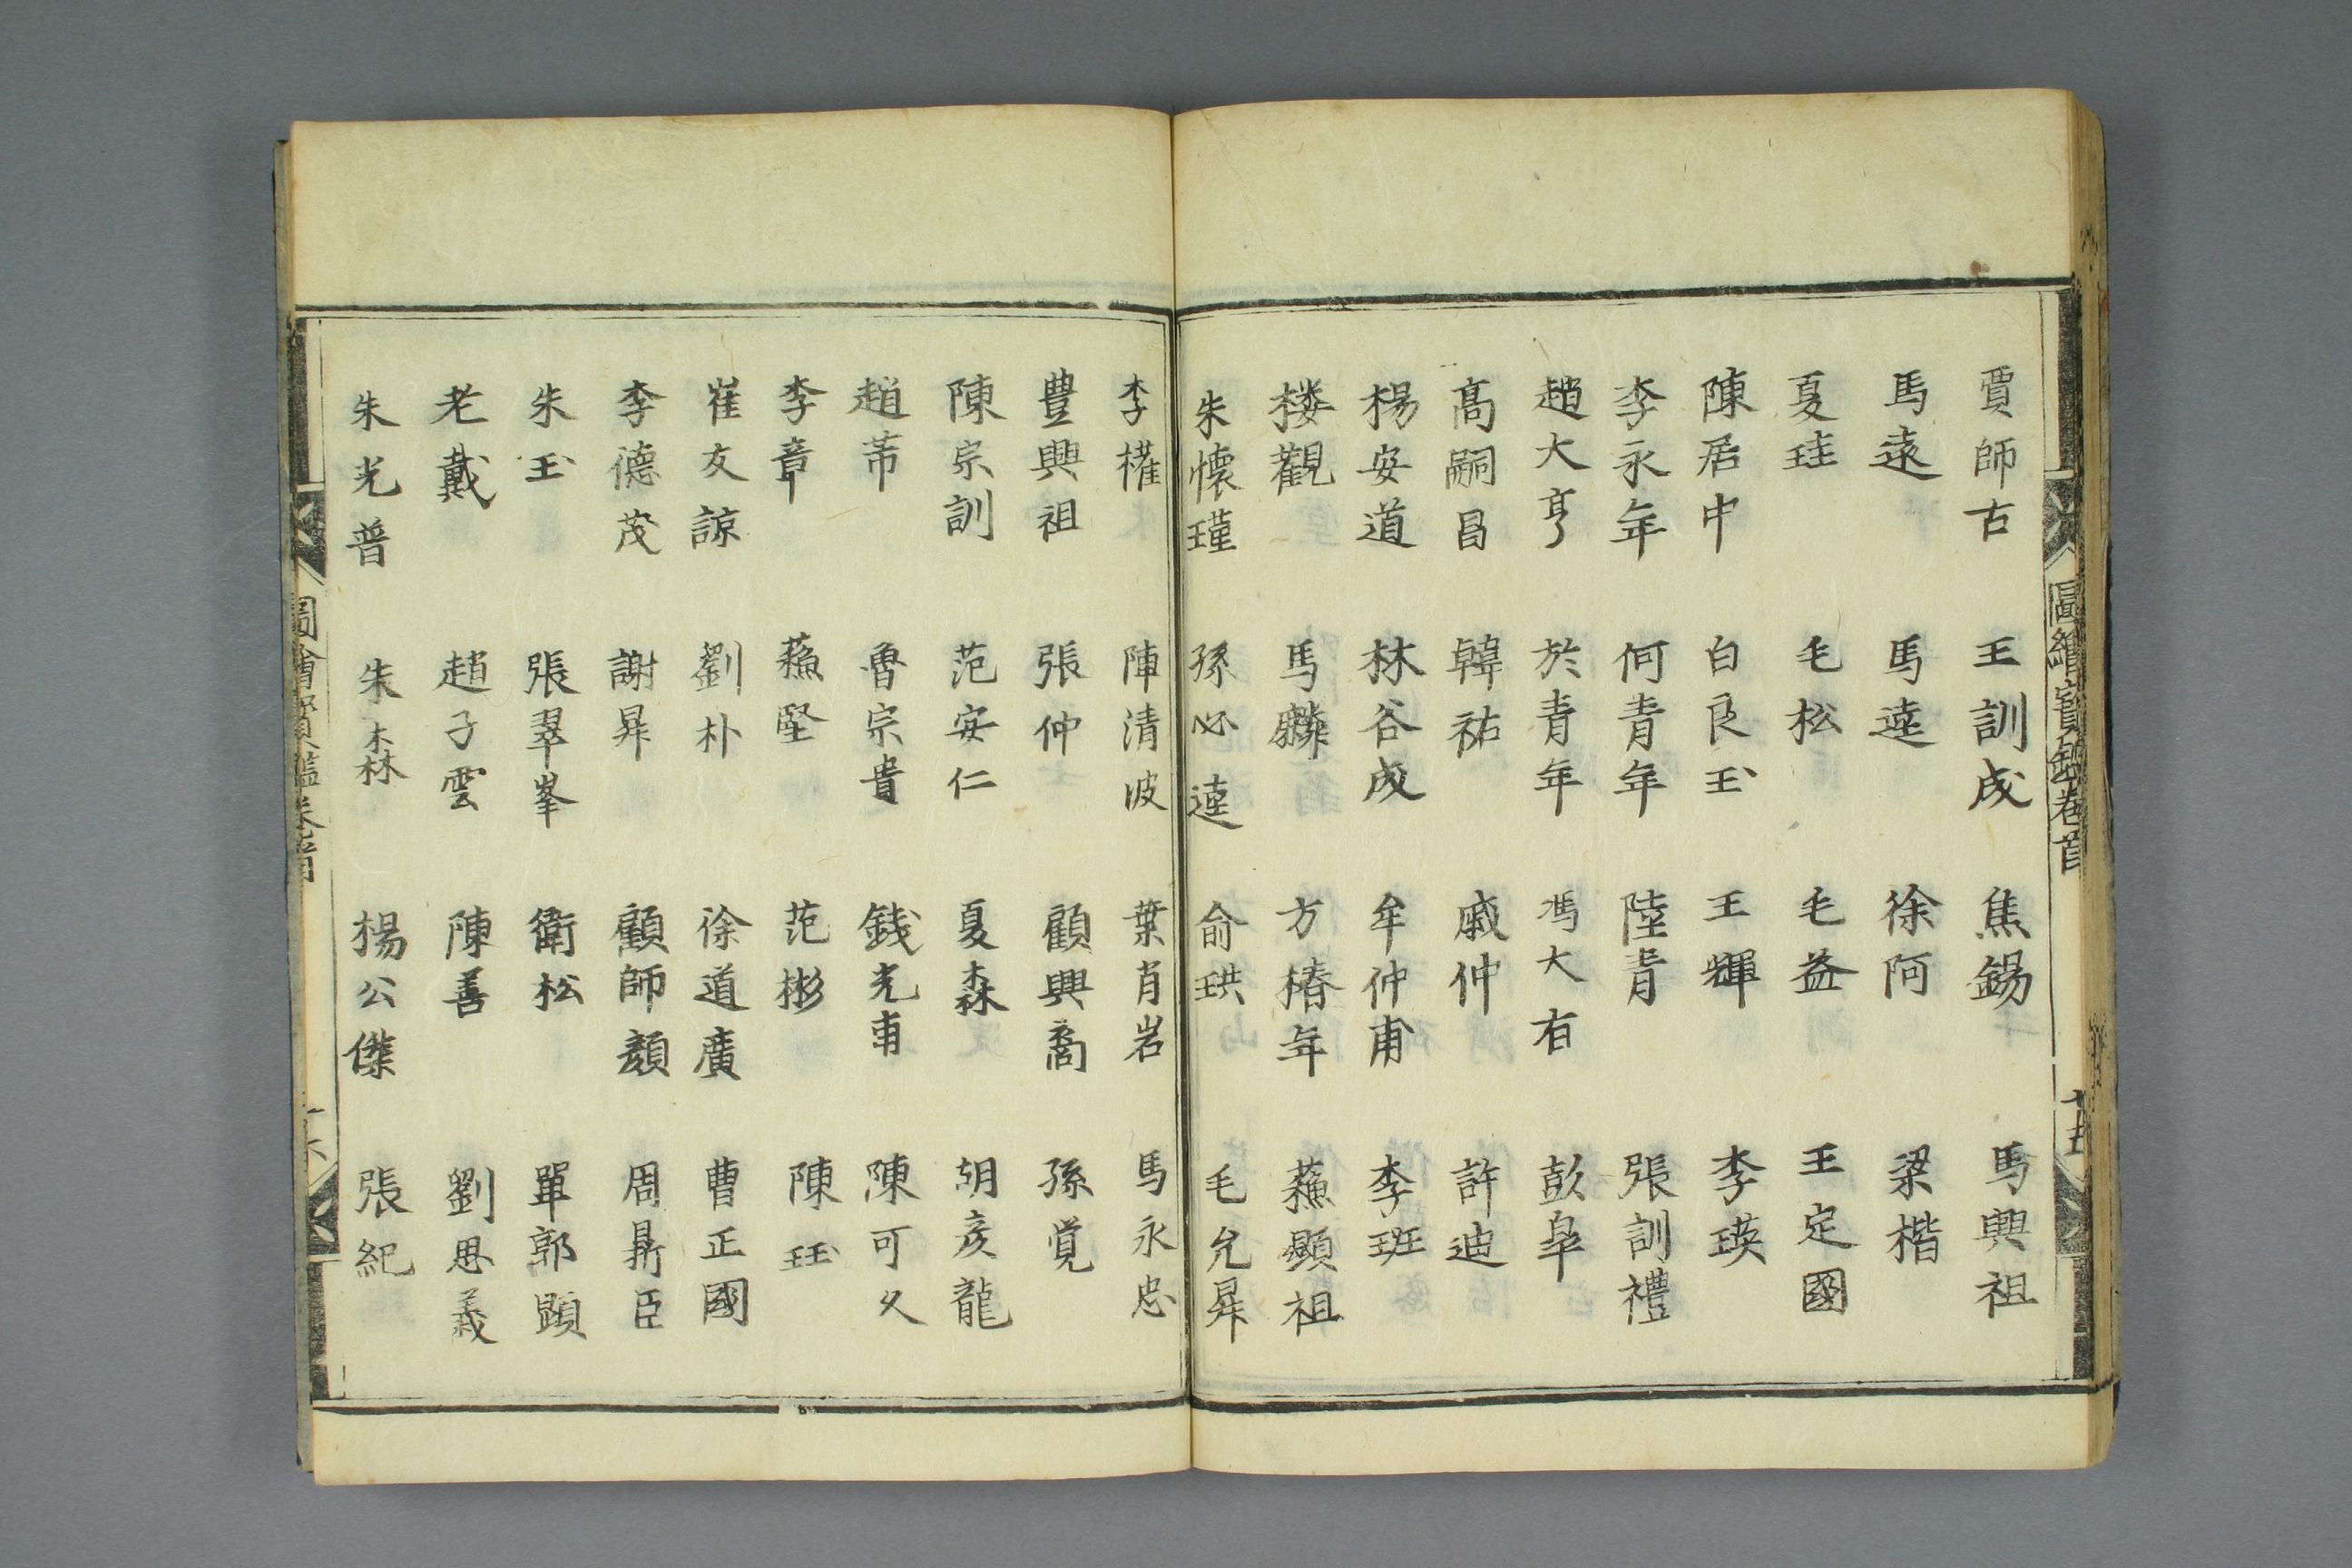 圖繪寶鑑卷首
十五
賈師古 王訓成 焦錫 馬興祖
馬遠 馬逵 徐阿 梁楷
夏珪 毛松 毛益 王定國
陳居中 白良玉 王輝 李瑛
李永年 何青年 陸青 張訓禮
趙大亨 於青年 馮大有 彭皐
髙嗣昌 韓祐 戚仲 許迪
楊安道 林谷成 牟仲甫 李班
楼觀 馬麟 方椿年 蘓顯祖
朱懷瑾 孫必達 俞珙 毛允昇
李權 陳清波 葉肖岩 馬永忠
豊興祖 張仲 顧興裔 孫覚
陳宗訓 范安仁 夏森 胡彦龍
趙芾 魯宗貴 錢光甫 陳可久
李章 蘓堅 范彬 陳珏
崔友諒 劉朴 徐道廣 曹正國
李德茂 謝昇 顧師顔 周鼎臣
朱玉 張翠峯 衛松 單郭顕
老戴 趙子雲 陳善 劉思義
朱光普 朱森 楊公傑 張紀
圖繪寶鑑卷首
十六